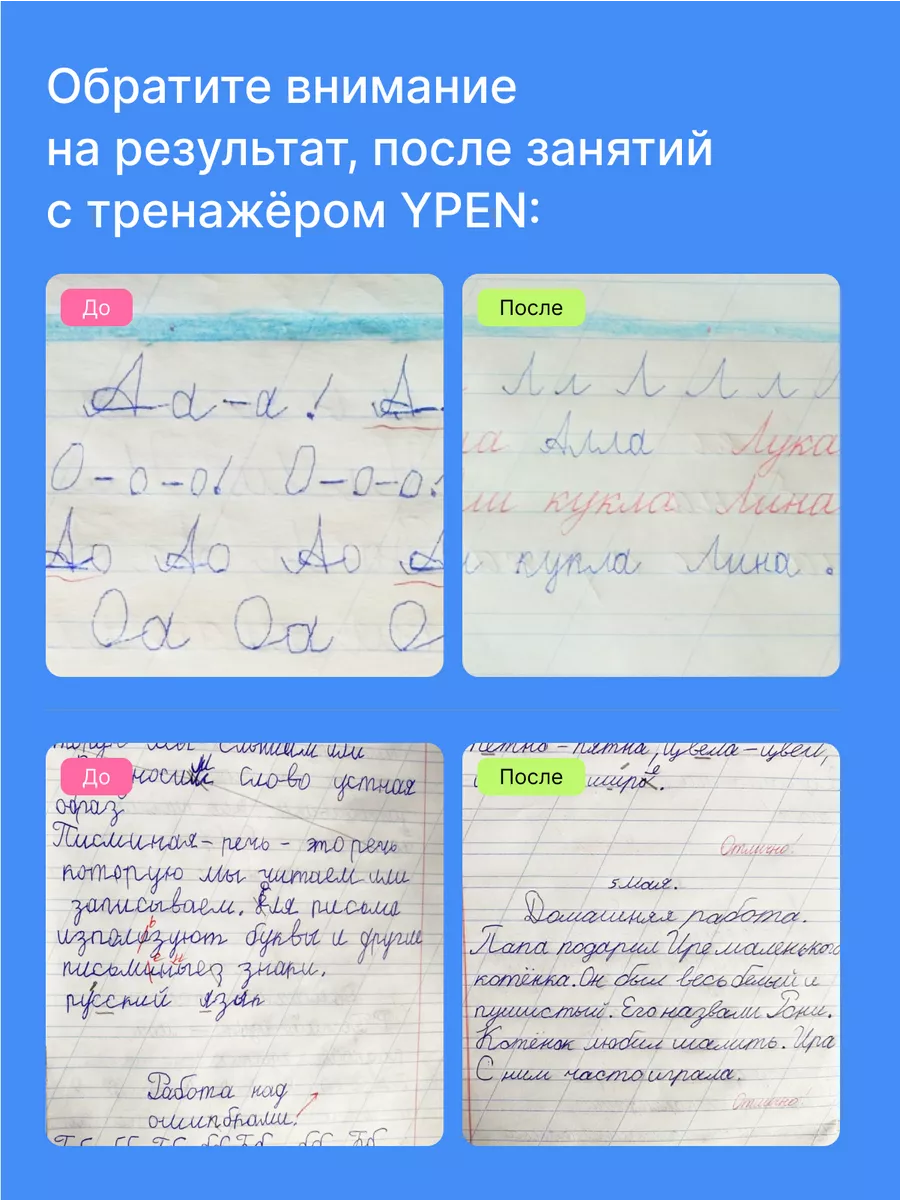 Обратите внимание
на результат, после занятий
с тренажёром YPEN:
До
А-а-а! А-
О-о-о! О-о-о!
Ао Ао Ао А
Оа Оа О
После
Лл Л Л л Л
на Алла Лука
ли кукла Лина
и кукла Лина.
До
мы слышим или
слово устная
образ
Писминая-речь - это речь
которую мы читаем или
записываем. Для писма
използуют буквы и другие
знаки.
русский язык
Работа над
ошибками.
После
- пятна, цвела - цвет,
Отлично!
5 мая.
Домашняя работа.
Папа подарил Ире маленького
котёнка. Он был весь белый и
пушистый. Его назвали
Котёнок любил шалить. Ира
С ним часто играла.
Отлично